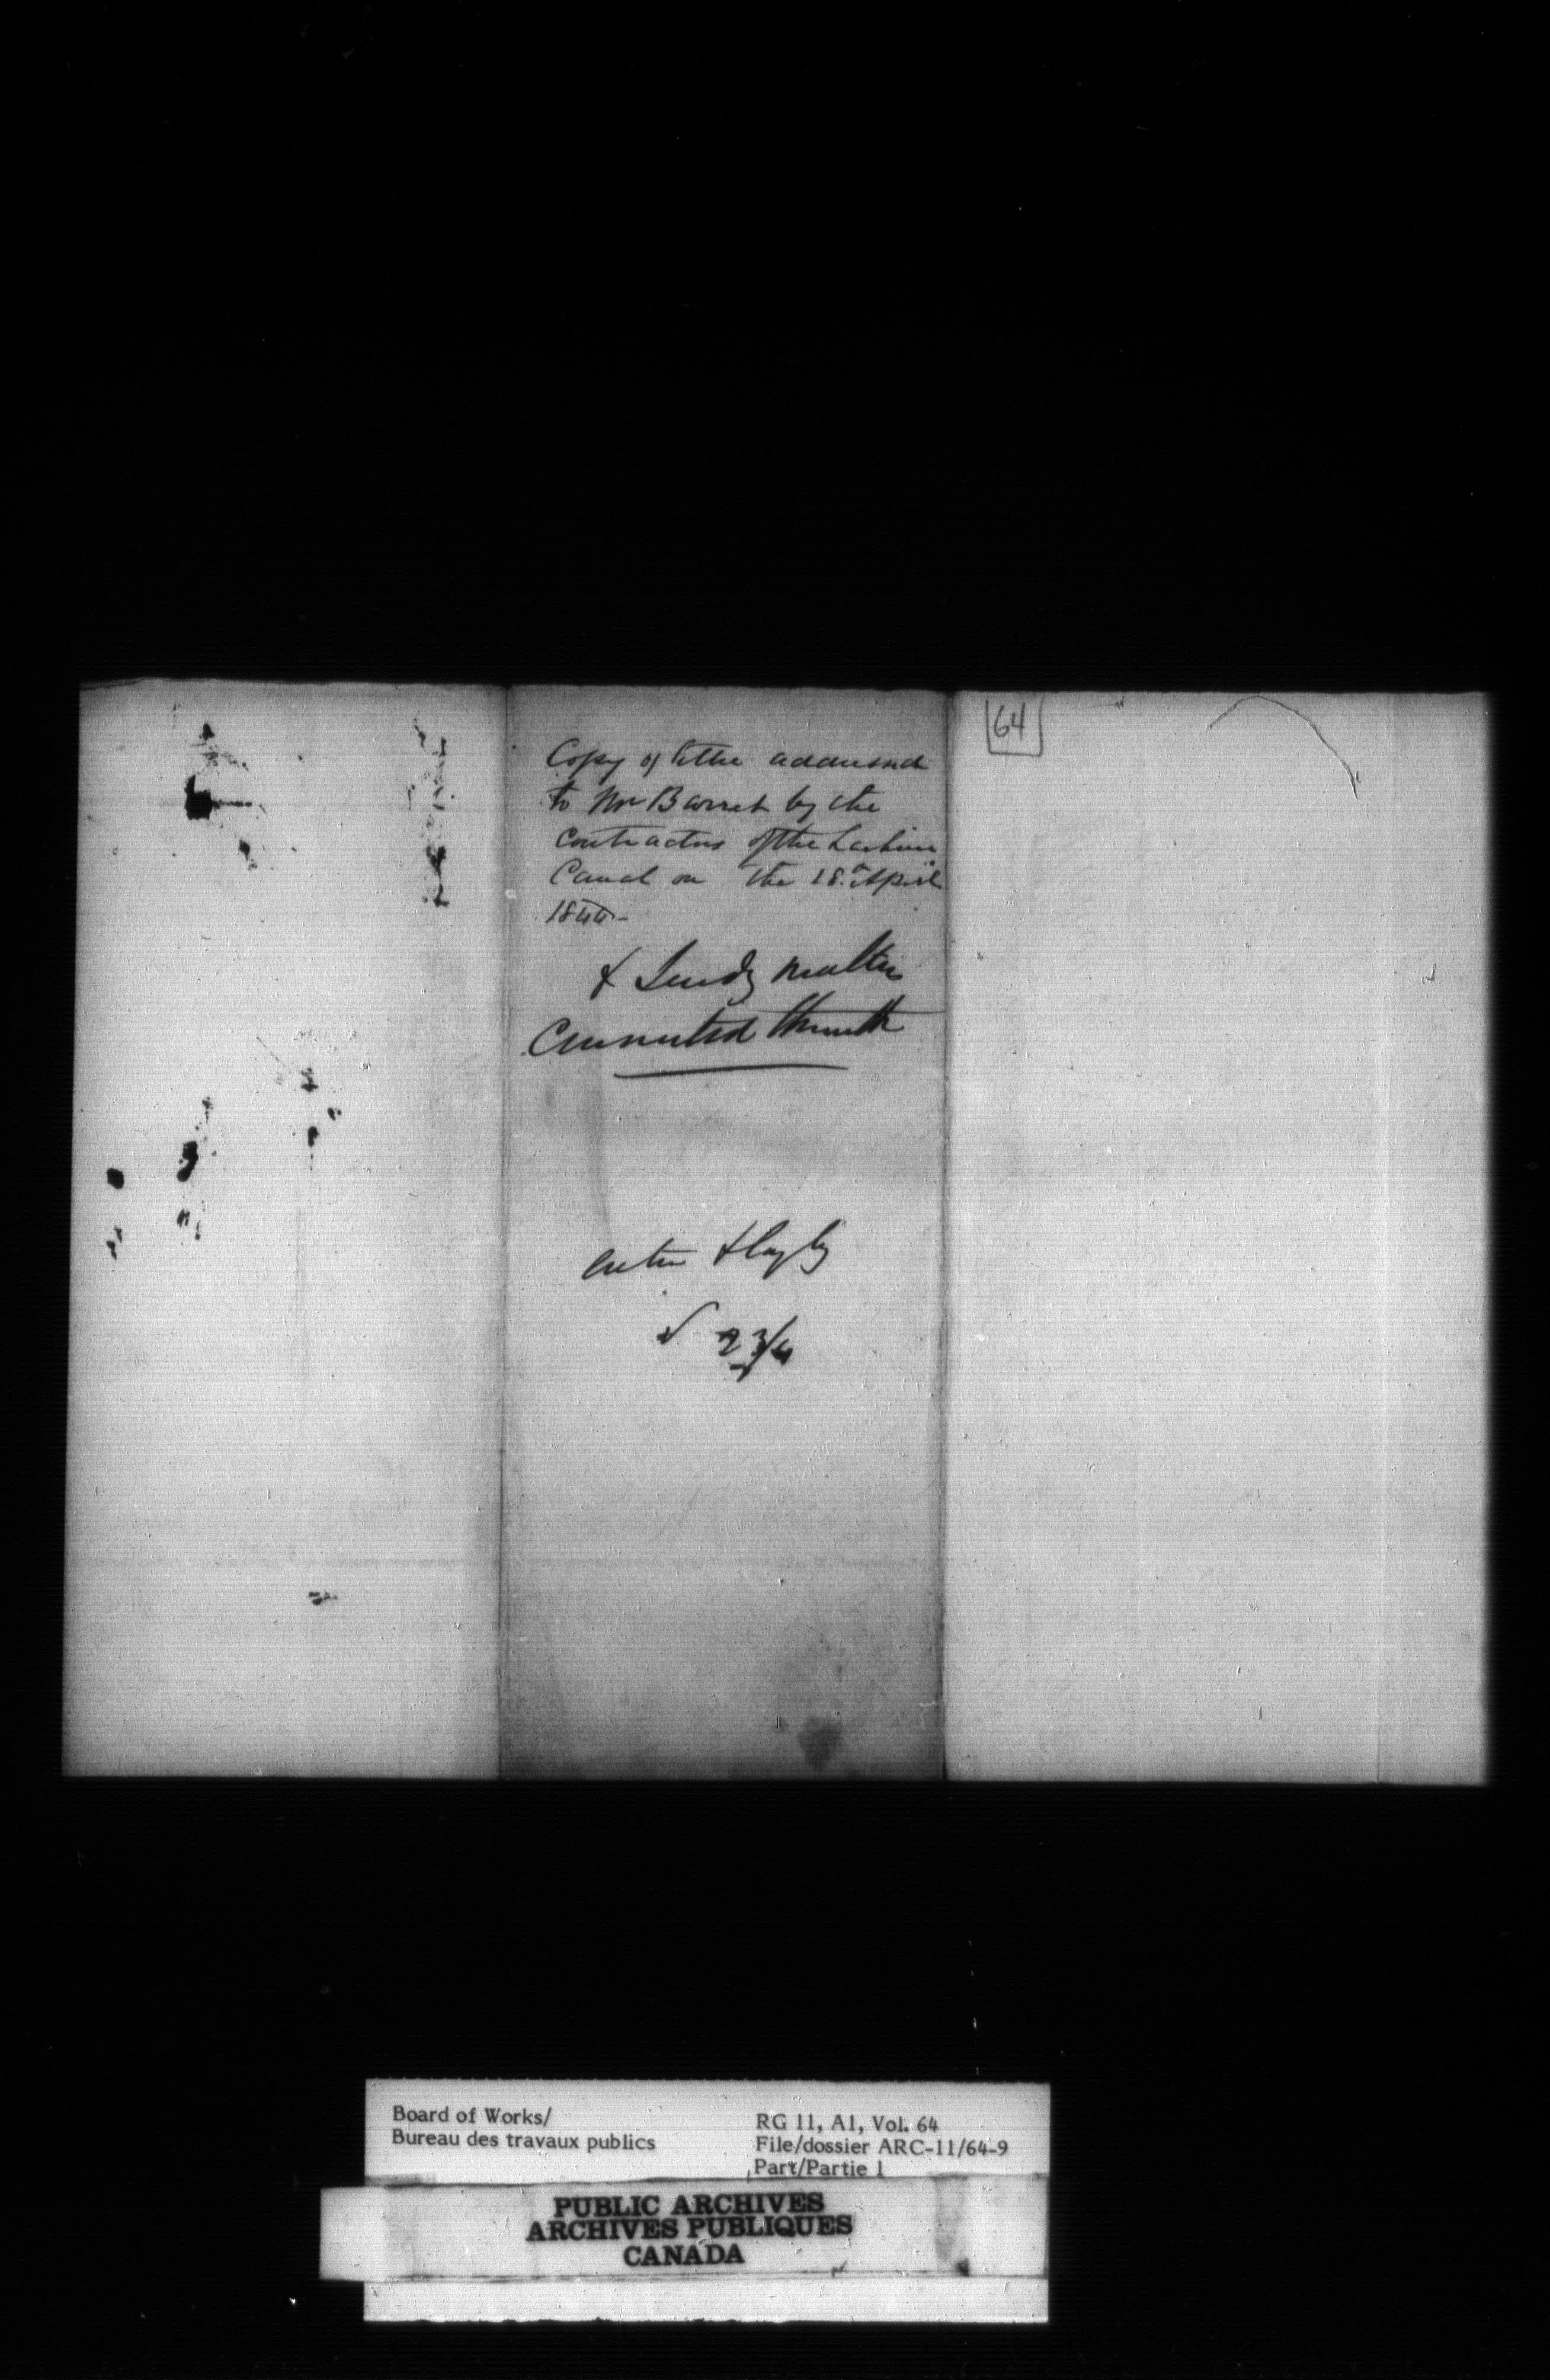 Copy of letter addressed
to Mr Barret by the
Contractors of the Lachine
Canal on the 18th April
1844 -
& Sundry matters
Connected therewith
enter & lay by
64
Board of Works/
Bureau des travaux publics
RG 11, A1, Vol. 64
File/dossier ARC-11/64-9
Part/Partie 1
PUBLIC ARCHIVES
ARCHIVES PUBLIQUES
CANADA